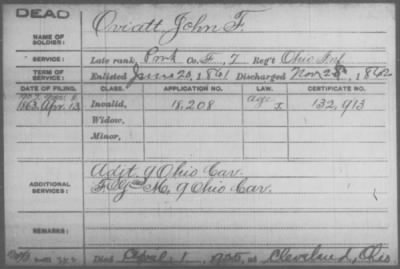 DEAD
NAME OF SOLDIER: Oviatt, John F.
SERVICE: Late rank, Co. F, 7 Reg't Ohio Inf
TERM OF SERVICE: Enlisted June 20, 1861 Discharged Nov 28, 1862
DATE OF FILING. CLASS. APPLICATION NO. LAW. CERTIFICATE NO.
1863. Apr. 13 Invalid, 18,208 132,913
Widow,
Minor,
ADDITIONAL SERVICES: Adjt. 9 Ohio Cav.
9 Ohio Cav.
REMARKS:
Died April 1, at Cleveland, Ohio